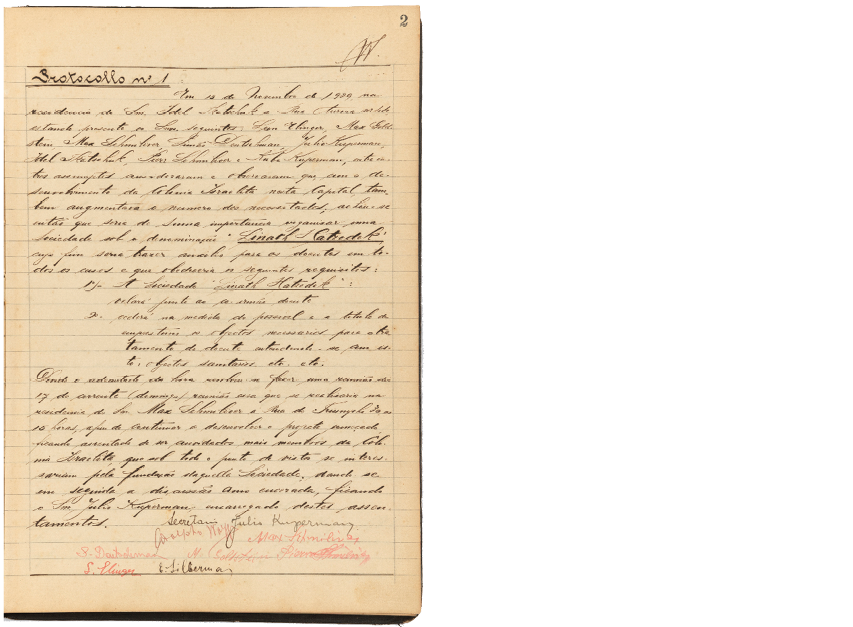 2
Protocollo nº 1
Em 12 de Novembro de 1929 na
residencia do Snr. Idel a Rua Aurora
estando presente os Snrs. seguintes: Max
Max Simão Julio Kuperman,
Idel e Kuperman,
assumptos consideraram e que com o de-
senvolvimento da Colonia Israelita nesta Capital tam-
bem augmentava o numero dos necessitados, achou-se
então que seria de summa importancia organisar uma
Sociedade sob a denominação "Linath Hatzedek"
cujo fim seria trazer auxilio para os doentes em to-
dos os casos e que obedeceria os seguintes requisitos:
1º) A Sociedade "Linath Hatzedek":
velará junto ao irmão doente
2. cederá na medida do possivel e a titulo de
emprestimo os objectos necessarios para o tra-
tamento do doente entendendo-se com is-
to: objectos sanitarios etc. etc.
o adeantado da hora resolveu-se fazer uma reunião
17 do corrente (domingo) reunião essa que se realisaria na
residencia do Snr. Max a Rua do Triumpho
10 horas, afim de continuar a desenvolver o projecto
ficando de ser mais membros da Colo-
nia Israelita que sob todo o ponto de vista se interes-
sariam pela fundação daquella Sociedade, dando-se
em seguida a discussão como encerrada, ficando
o Snr. Julio Kuperman encarregado destes assen-
tamentos.
Secretario Julio Kuperman
S.
S. E. Silberman